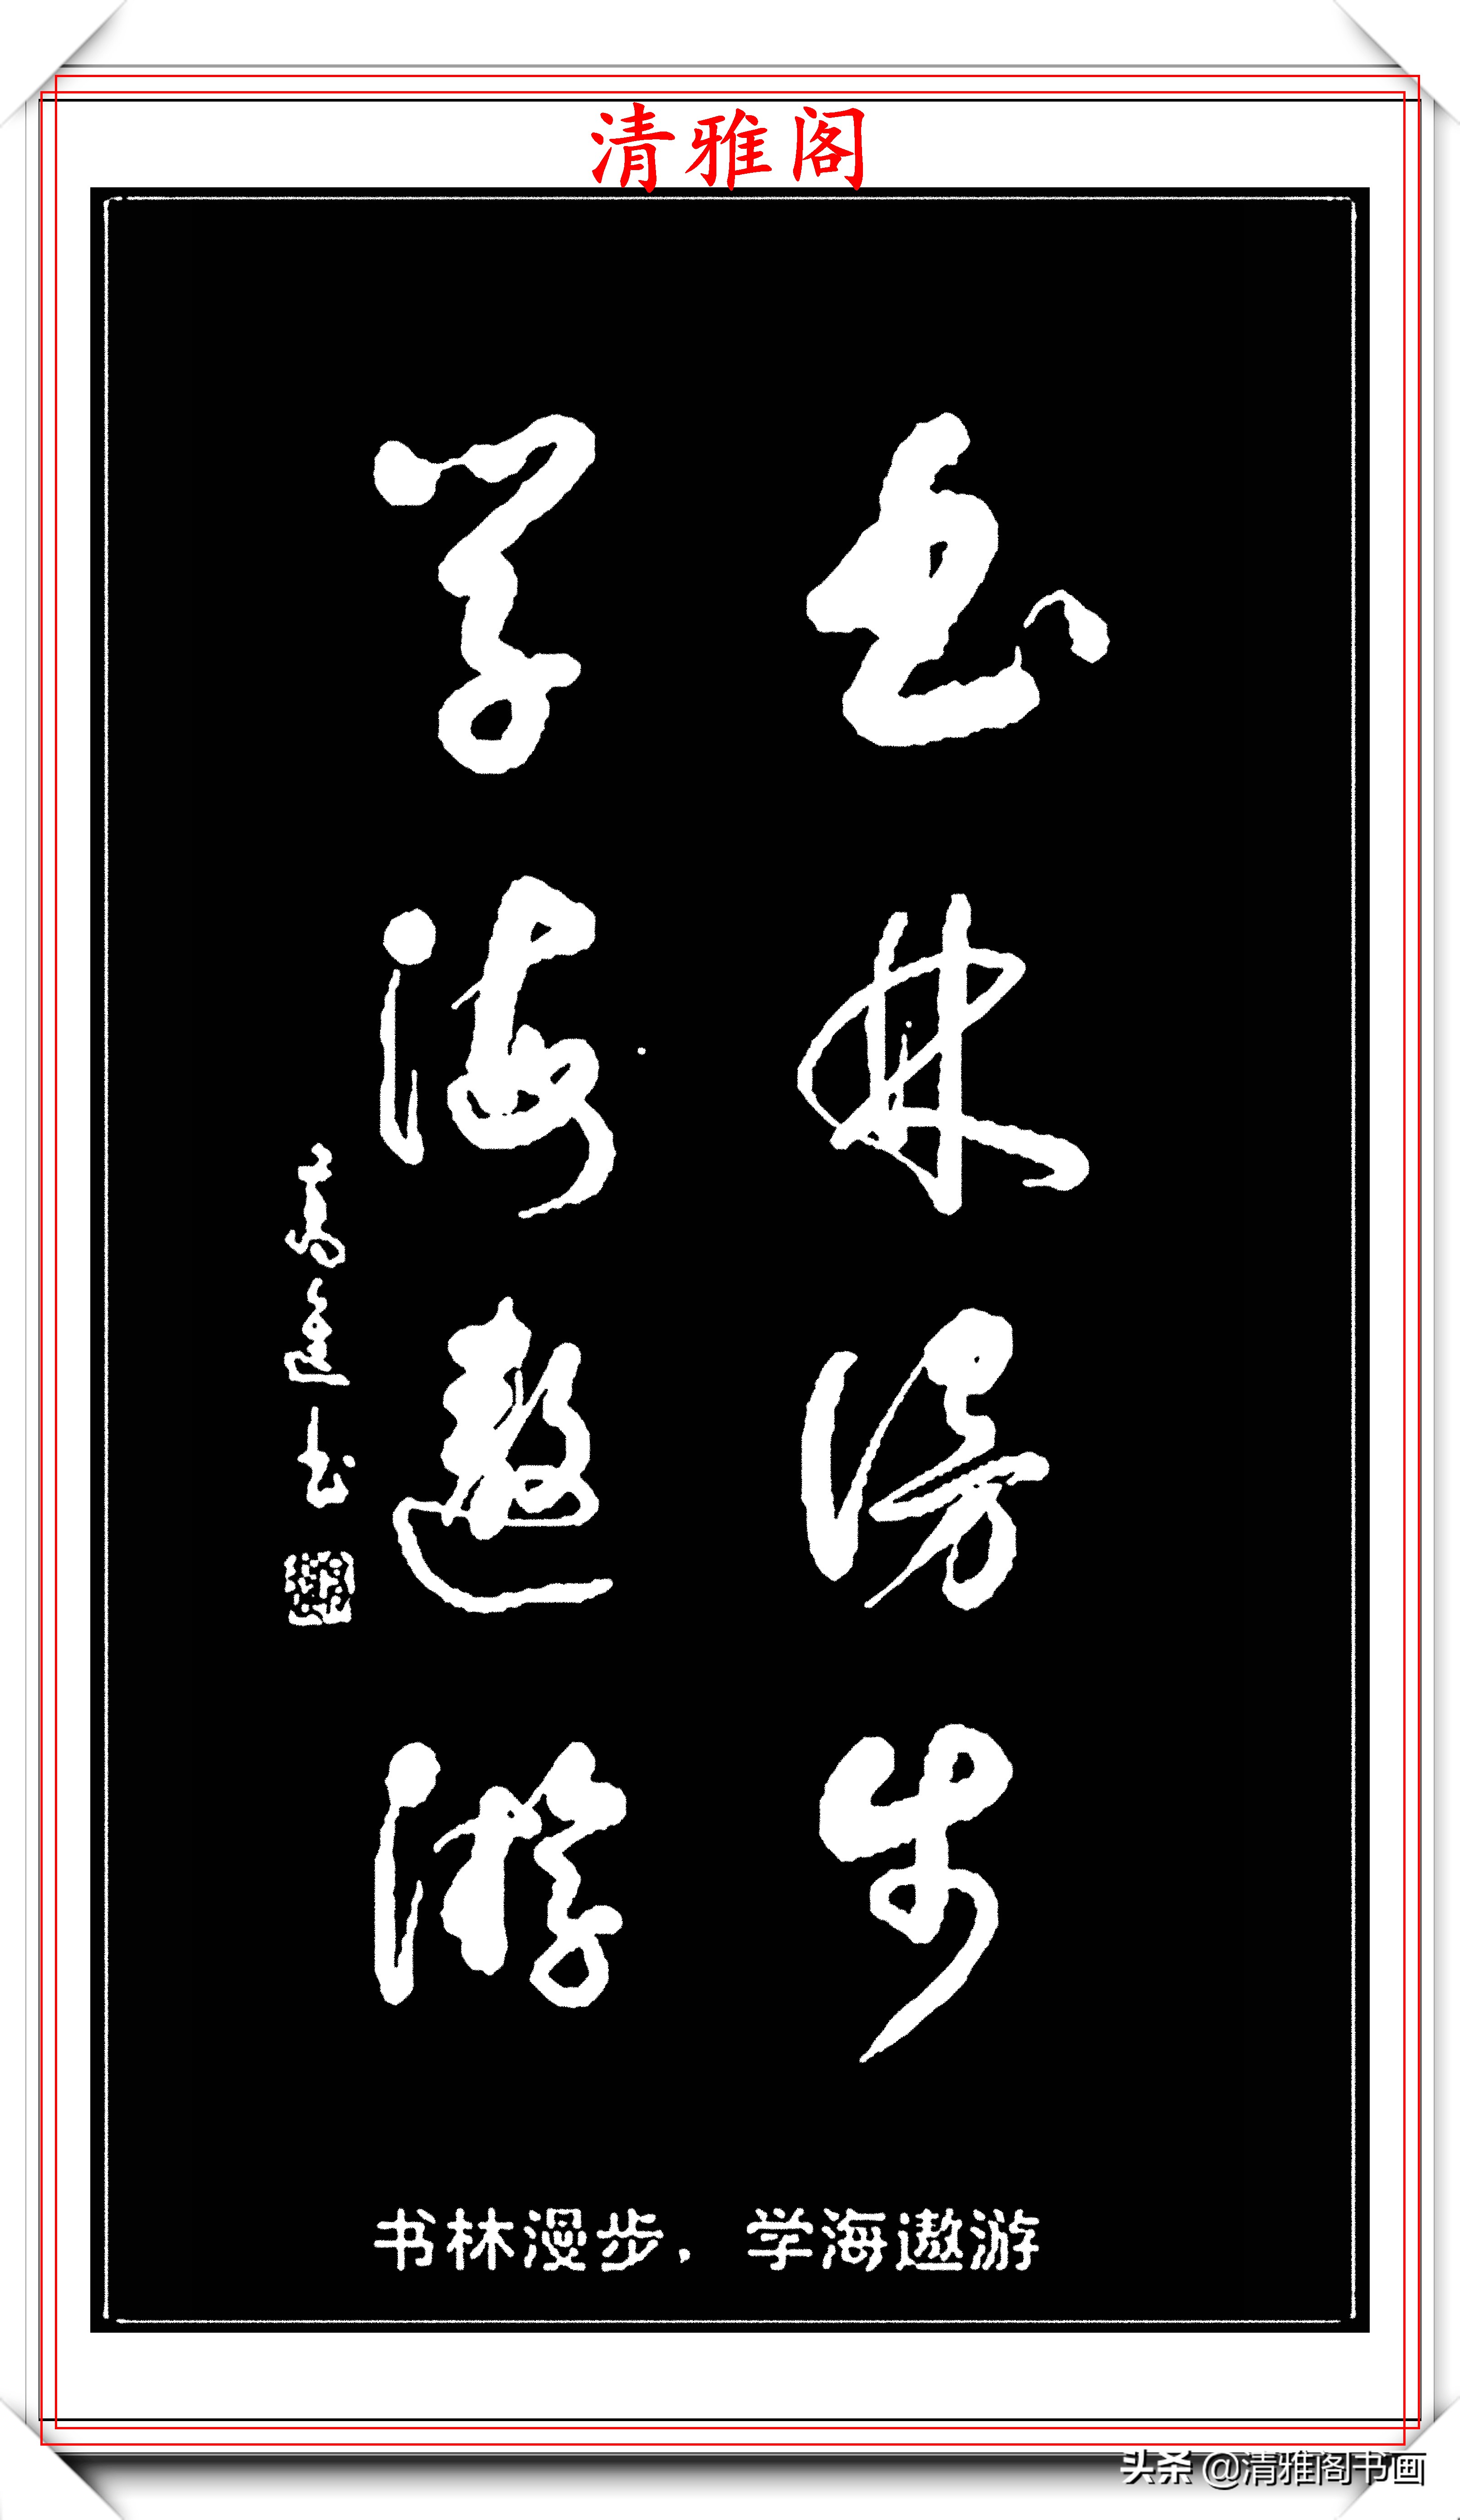 清雅阁
书林漫步
学海遨游
书林漫步，学海遨游
头条 @清雅阁书画